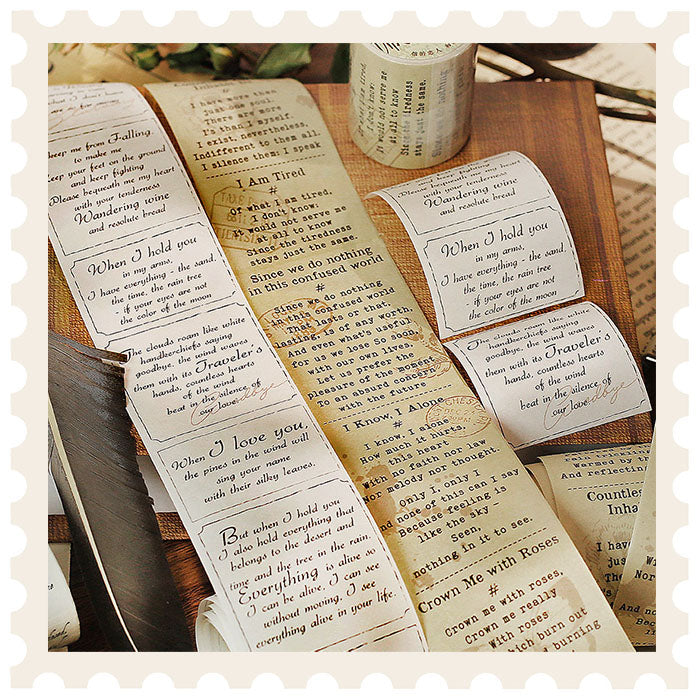 Keep me from Falling
to make me
Keep your feet on the ground
and keep fighting
Please bequeath me my heart
with your tenderness
Wandering wine
and resolute bread
When I hold you
in my arms,
I have everything - the sand,
the time, the rain tree
- if your eyes are not
the color of the moon
The clouds roam like white
handkerchiefs saying
goodbye, the wind waves
them with its Traveler's
hands, countless hearts
of the wind
beat in the silence of
our love
When I love you,
the pines in the wind will
sing your name
with their silky leaves.
But when I hold you
I also hold everything that
belongs to the desert and
time and the tree in the rain
Everything is alive so
I can be alive, I can see
without moving, I see
everything alive in your life.
I have more than
just one soul.
There are more
I's than I myself.
I exist, nevertheless,
Indifferent to them all.
I silence them: I speak
I Am Tired
#
Of what I am tired,
I don't know:
It would not serve me
at all to know
Since the tiredness
stays just the same.
Since we do nothing
in this confused world
#
Since we do nothing
in this confused world
That lasts or that,
lasting, is of any worth
And even what's useful
for us we lose So soon,
with our own lives,
Let us prefer the
pleasure of the moment
To an absurd concern
with the future
I Know, I Alone
#
I know, I alone
How much it hurts,
this heart
With no faith nor law
Nor melody nor thought.
Only I, only I
And none of this can I say
Because feeling is
like the sky
Seen,
nothing in it to see.
Crown Me with Roses
#
Crown me with roses,
Crown me really
With roses
which burn out
burning
tired,
I don't know:
would not serve me
at all to know
Since the tiredness
stays just the same.
and keep fighting
Please bequeath me my heart
with your tenderness
Wandering wine
and resolute bread
When I hold you
in my arms,
I have everything - the sand,
the time, the rain tree
- if your eyes are not
the color of the moon
The clouds roam like white
handkerchiefs saying
goodbye, the wind waves
them with its Traveler's
hands, countless hearts
of the wind
beat in the silence of
our love
Warmed by
And reflecting
Countless
Inha
#
I have
just
The